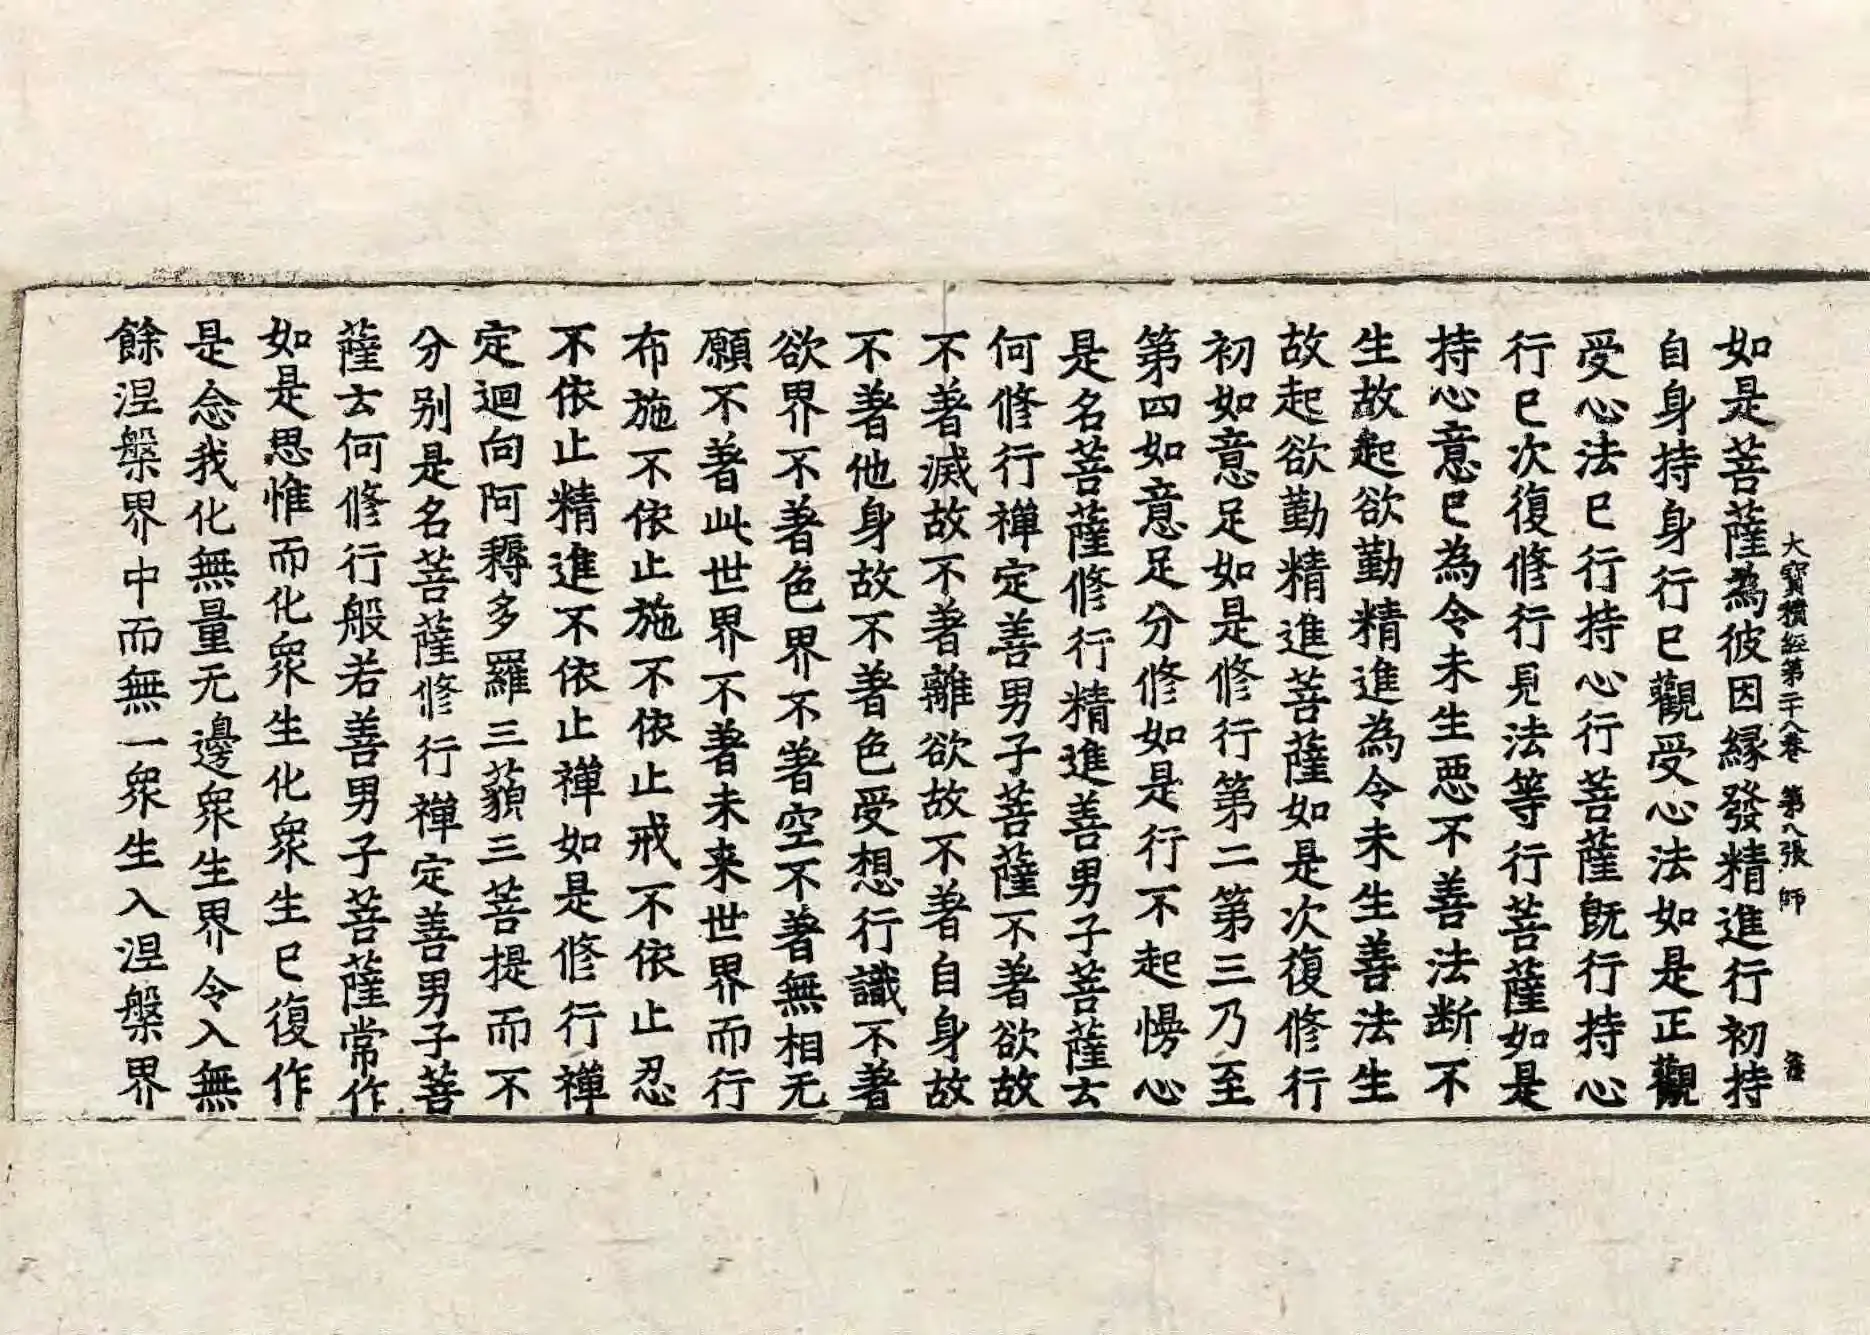 大寳積經第二十八卷　第八張　師
如是菩薩為彼因緣發精進行初持
自身持身行已觀受心法如是正觀
受心法已行持心行菩薩旣行持心
行已次復修行見法等行菩薩如是
持心意已為令未生悪不善法断不
生故起欲勤精進為令未生善法生
故起欲勤精進菩薩如是次復修行
初如意足如是修行第二第三乃至
第四如意足分修如是行不起慢心
是名菩薩修行精進善男子菩薩去
何修行禪定善男子菩薩不著欲故
不著滅故不著離欲故不著自身故
不著他身故不著色受想行識不著
欲界不著色界不著空不著無相无
願不著此世界不著未来世界而行
布施不依止施不依止戒不依止忍
不依止精進不依止禪如是修行禪
定迴向阿耨多羅三藐三菩提而不
分别是名菩薩修行禪定善男子菩
薩去何修行般若善男子菩薩常作
如是思惟而化衆生化衆生已復作
是念我化無量无邊衆生界令入無
餘涅槃界中而無一衆生入涅槃界